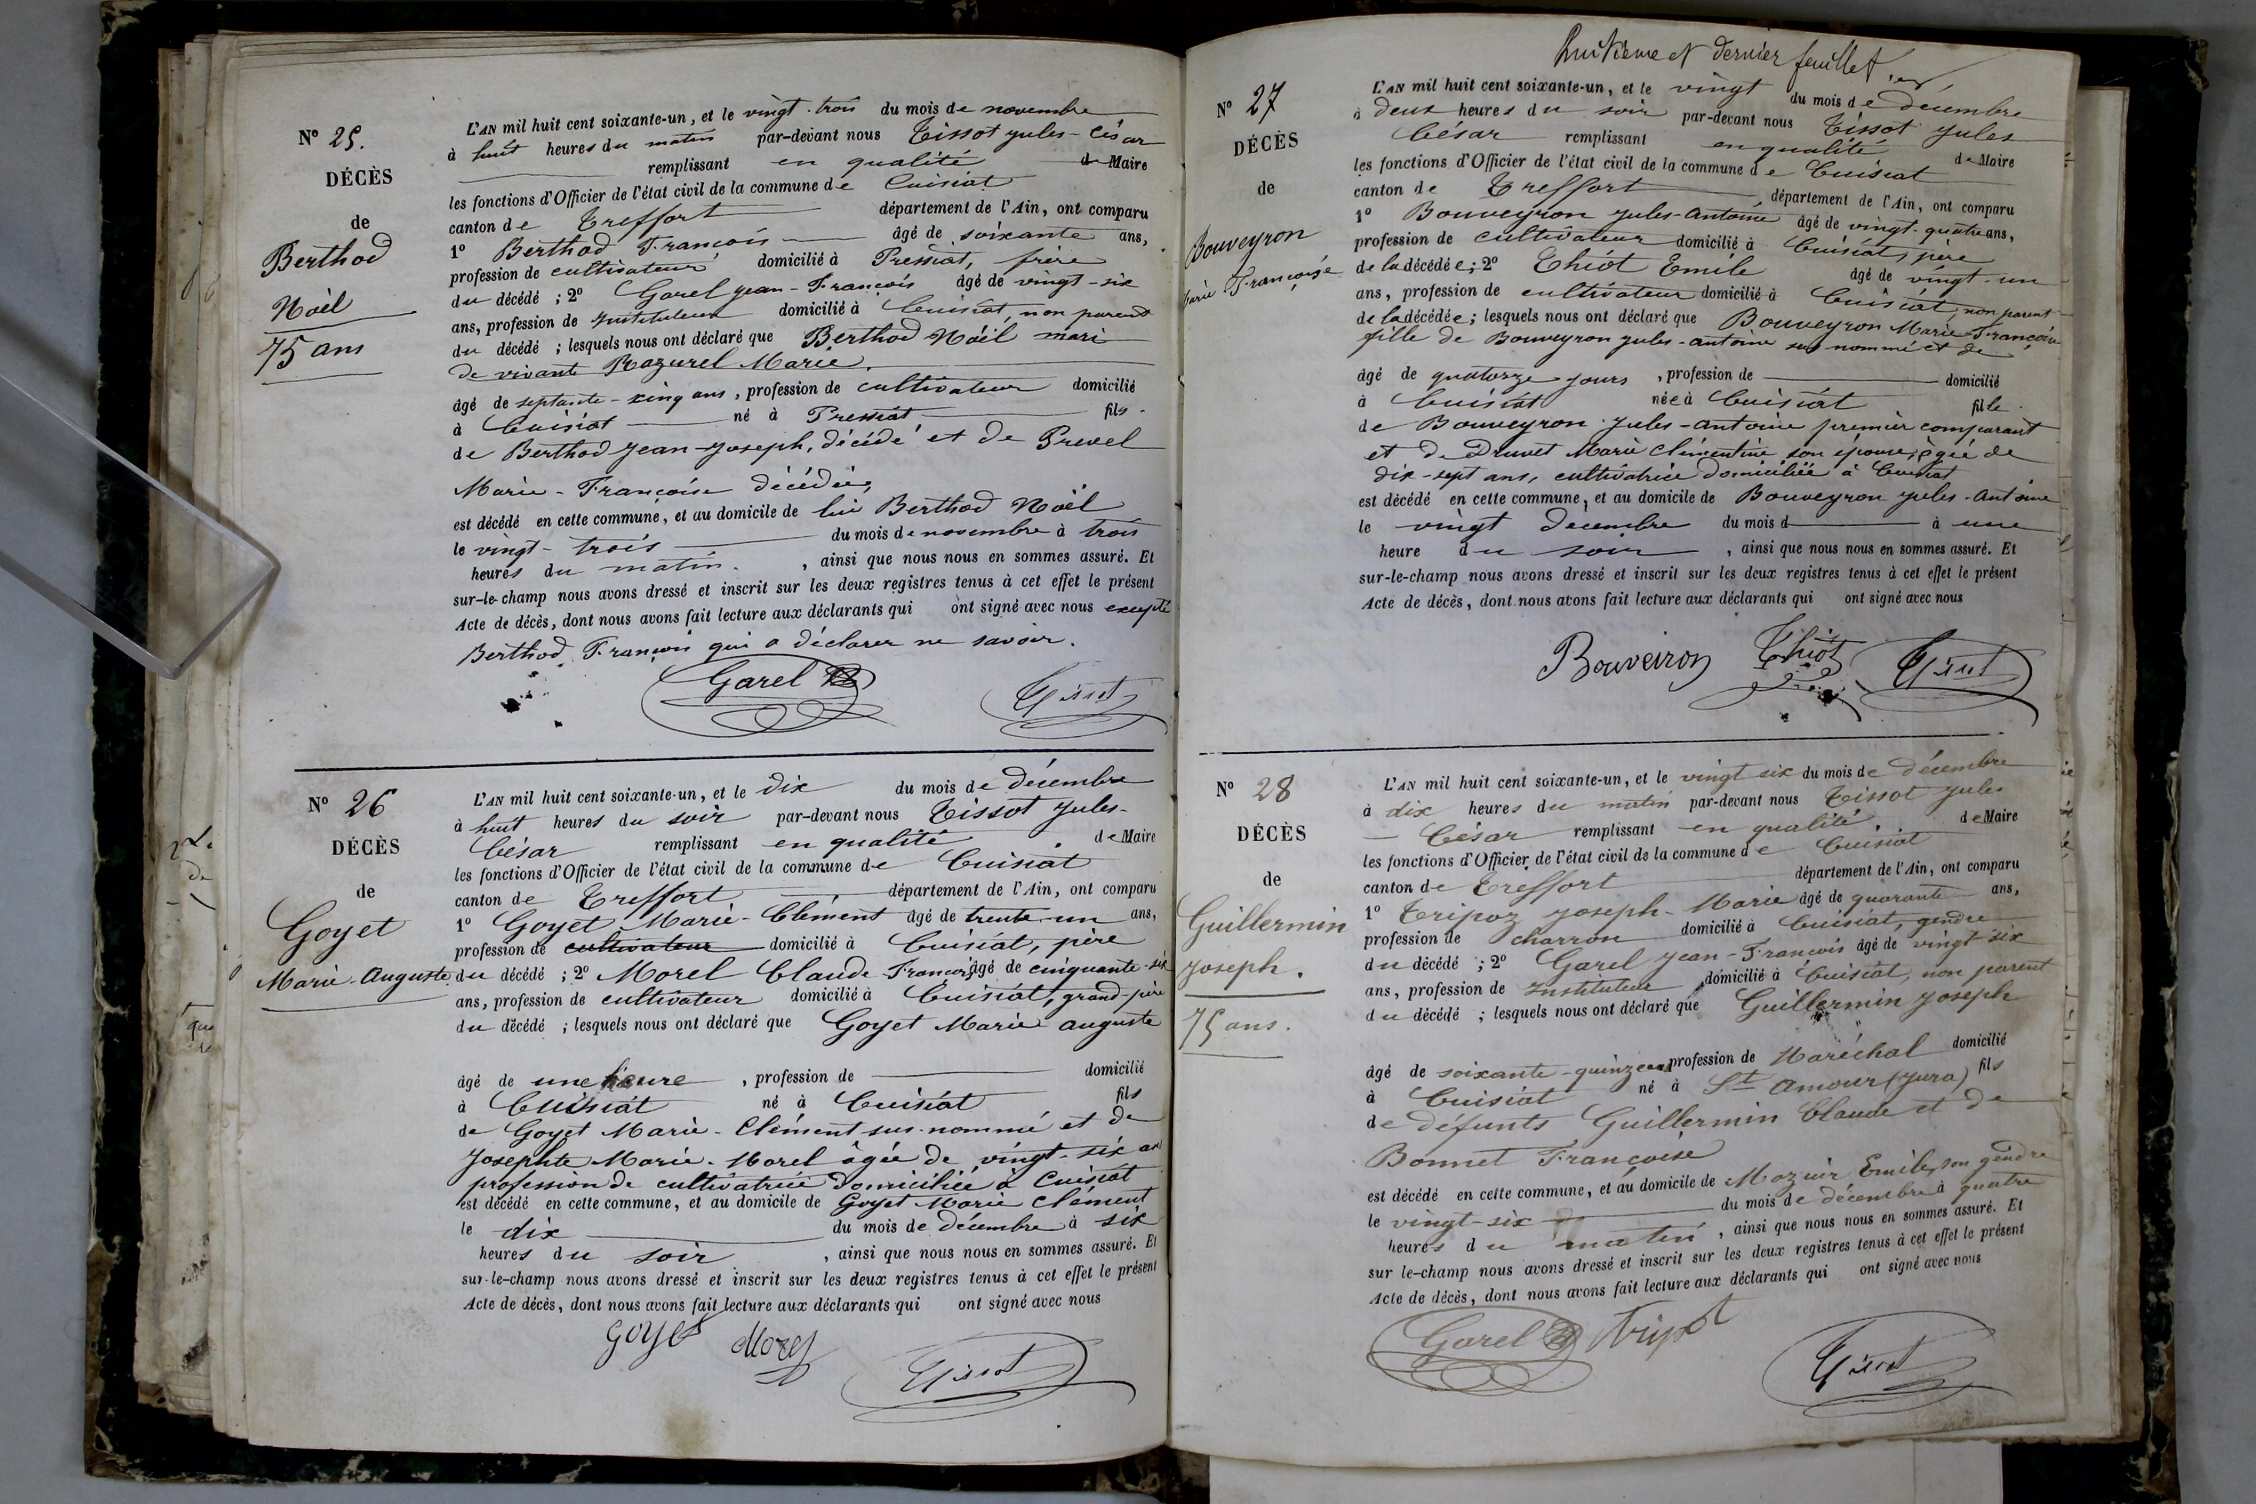 N° 25.
DÉCÈS
de
Berthod
Noël
75 ans
L'AN mil huit cent soixante-un, et le vingt-trois du mois de novembre
à huit heures du matin par-devant nous Tissot Jules-César
remplissant en qualité de Maire
les fonctions d'Officier de l'état civil de la commune de Cuisiat
canton de Treffort département de l'Ain, ont comparu
1° Berthod François âgé de soixante ans,
profession de cultivateur domicilié à Pressiat, frère
du décédé ; 2° Garel Jean-François âgé de vingt-six
ans, profession de Instituteur domicilié à Cuisiat, non parent
du décédé ; lesquels nous ont déclaré que Berthod Noël mari
de vivante Razurel Marie.
âgé de septante-cinq ans, profession de cultivateur domicilié
à Cuisiat né à Pressiat fils
de Berthod Jean-Joseph, décédé et de Prevel
Marie-Françoise décédée,
est décédé en cette commune, et au domicile de lui Berthod Noël
le vingt-trois du mois de novembre à trois
heures du matin. , ainsi que nous nous en sommes assuré. Et
sur-le-champ nous avons dressé et inscrit sur les deux registres tenus à cet effet le présent
Acte de décès, dont nous avons fait lecture aux déclarants qui ont signé avec nous excepté
Berthod François qui a déclarer ne savoir.
Garel Tissot
N° 26
DÉCÈS
de
Goyet
Marie-Auguste
L'AN mil huit cent soixante-un, et le dix du mois de décembre
à huit heures du soir par-devant nous Tissot Jules-
César remplissant en qualité de Maire
les fonctions d'Officier de l'état civil de la commune de Cuisiat
canton de Treffort département de l'Ain, ont comparu
1° Goyet Marie-Clément âgé de trente-un ans,
profession de cultivateur domicilié à Cuisiat, père
du décédé ; 2° Morel Claude-François âgé de cinquante-six
ans, profession de cultivateur domicilié à Cuisiat, grand-père
du décédé ; lesquels nous ont déclaré que Goyet Marie auguste
âgé de une heure , profession de domicilié
à Cuisiat né à Cuisiat fils
de Goyet Marie-Clément sus-nommé et de
Josephte Marie-Morel âgée de vingt-six ans
profession de cultivatrice domiciliée à Cuisiat
est décédé en cette commune, et au domicile de Goyet Marie Clément
le dix du mois de décembre à six
heures du soir , ainsi que nous nous en sommes assuré. Et
sur-le-champ nous avons dressé et inscrit sur les deux registres tenus à cet effet le présent
Acte de décès, dont nous avons fait lecture aux déclarants qui ont signé avec nous
Goyet Morel Tissot
huitième et dernier feuillet
N° 27
DÉCÈS
de
Bouveyron
Marie-Françoise
L'AN mil huit cent soixante-un, et le vingt du mois de décembre
à deux heures du soir par-devant nous Tissot Jules
César remplissant en qualité de Maire
les fonctions d'Officier de l'état civil de la commune de Cuisiat
canton de Treffort département de l'Ain, ont comparu
1° Bouveyron Jules-Antoine âgé de vingt-quatre ans,
profession de cultivateur domicilié à Cuisiat, père
de la décédée ; 2° Thiot Emile âgé de vingt-un
ans, profession de cultivateur domicilié à Cuisiat, non parent
de la décédée ; lesquels nous ont déclaré que Bouveyron Marie-Françoise
fille de Bouveyron Jules-antoine sus nommé et de
âgé de quatorze jours , profession de domicilié
à Cuisiat née à Cuisiat fille
de Bouveyron Jules-antoine premier comparant
et de Druvet Marie Clémentine son épouse, âgée de
dix-sept ans, cultivatrice domiciliée à Cuisiat
est décédé en cette commune, et au domicile de Bouveyron Jules-Antoine
le vingt décembre du mois d à une
heure du soir , ainsi que nous nous en sommes assuré. Et
sur-le-champ nous avons dressé et inscrit sur les deux registres tenus à cet effet le présent
Acte de décès, dont nous avons fait lecture aux déclarants qui ont signé avec nous
Bouveiron Thiot Tissot
N° 28
DÉCÈS
de
Guillermin
Joseph.
75 ans.
L'AN mil huit cent soixante-un, et le vingt six du mois de décembre
à dix heures du matin par-devant nous Tissot Jules
César remplissant en qualité de Maire
les fonctions d'Officier de l'état civil de la commune de Cuisiat
canton de Treffort département de l'Ain, ont comparu
1° Tripoz Joseph-Marie âgé de quarante ans,
profession de charron domicilié à Cuisiat, gendre
du décédé ; 2° Garel Jean-François âgé de vingt-six
ans, profession de Instituteur domicilié à Cuisiat, non parent
du décédé ; lesquels nous ont déclaré que Guillermin Joseph
âgé de soixante-quinze ans profession de Maréchal domicilié
à Cuisiat né à St Amour (Jura) fils
de défunts Guillermin Claude et de
Bonnet Françoise
est décédé en cette commune, et au domicile de Mozuir Emile, son gendre
le vingt-six du mois de décembre à quatre
heures du matin , ainsi que nous nous en sommes assuré. Et
sur le-champ nous avons dressé et inscrit sur les deux registres tenus à cet effet le présent
Acte de décès, dont nous avons fait lecture aux déclarants qui ont signé avec nous
Garel Tripoz Tissot